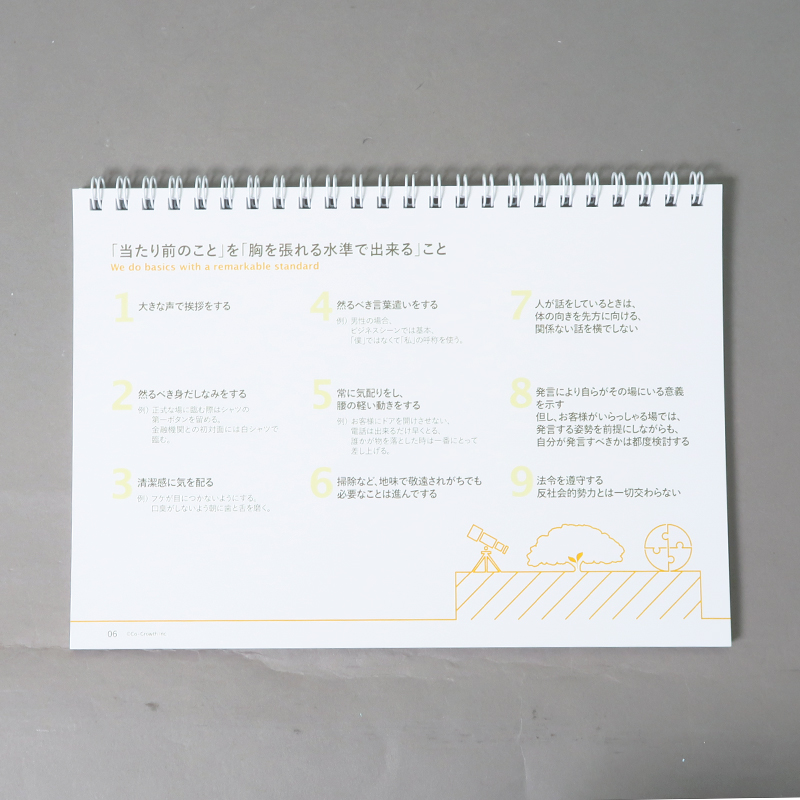 「当たり前のこと」を「胸を張れる水準で出来る」こと
We do basics with a remarkable standard
1
大きな声で挨拶をする
2
然るべき身だしなみをする
例）正式な場に臨む際はシャツの
第一ボタンを留める。
金融機関との初対面には白シャツで
臨む。
3
清潔感に気を配る
例）フケが目につかないようにする。
口臭がしないよう朝に歯と舌を磨く。
4
然るべき言葉遣いをする
例）男性の場合、
ビジネスシーンでは基本、
「僕」ではなくて「私」の呼称を使う。
5
常に気配りをし、
腰の軽い動きをする
例）お客様にドアを開けさせない。
電話は出来るだけ早くとる。
誰かが物を落とした時は一番にとって
差し上げる。
6
掃除など、地味で敬遠されがちでも
必要なことは進んでする
7
人が話をしているときは、
体の向きを先方に向ける、
関係ない話を横でしない
8
発言により自らがその場にいる意義
を示す
但し、お客様がいらっしゃる場では、
発言する姿勢を前提にしながらも、
自分が発言すべきかは都度検討する
9
法令を遵守する
反社会的勢力とは一切交わらない
06